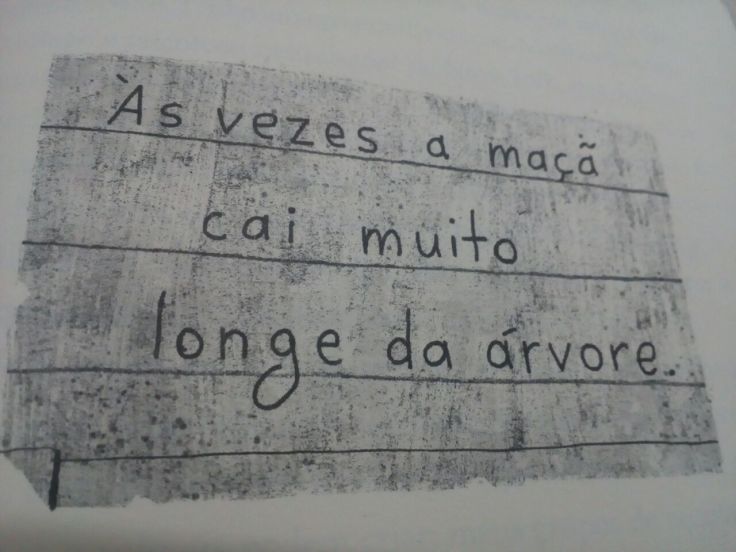 Às vezes a maçã
cai muito
longe da árvore.